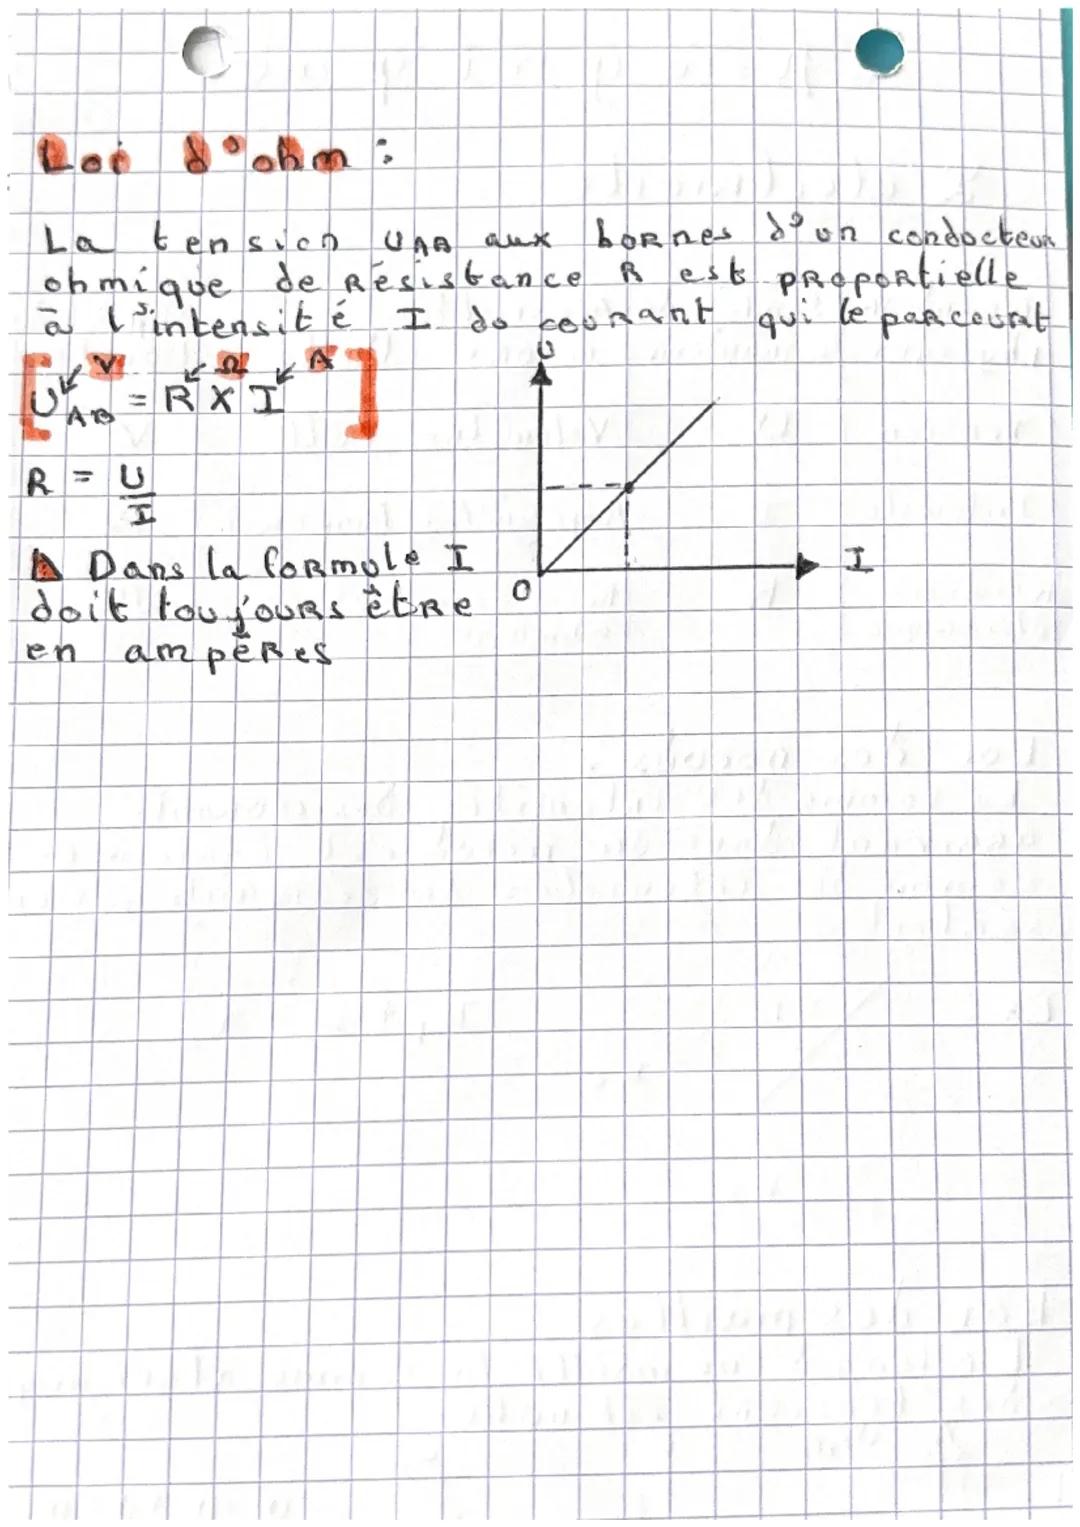 Loi d'ohm :
La tension UAB aux bornes d'un conducteur
ohmique de Résistance R est proportielle
à l'intensité I du courant qui le parcourt
V Ω A
UAB = R X I
R = U/I
Dans la formule I
doit toujours être
en ampères
U
I
O